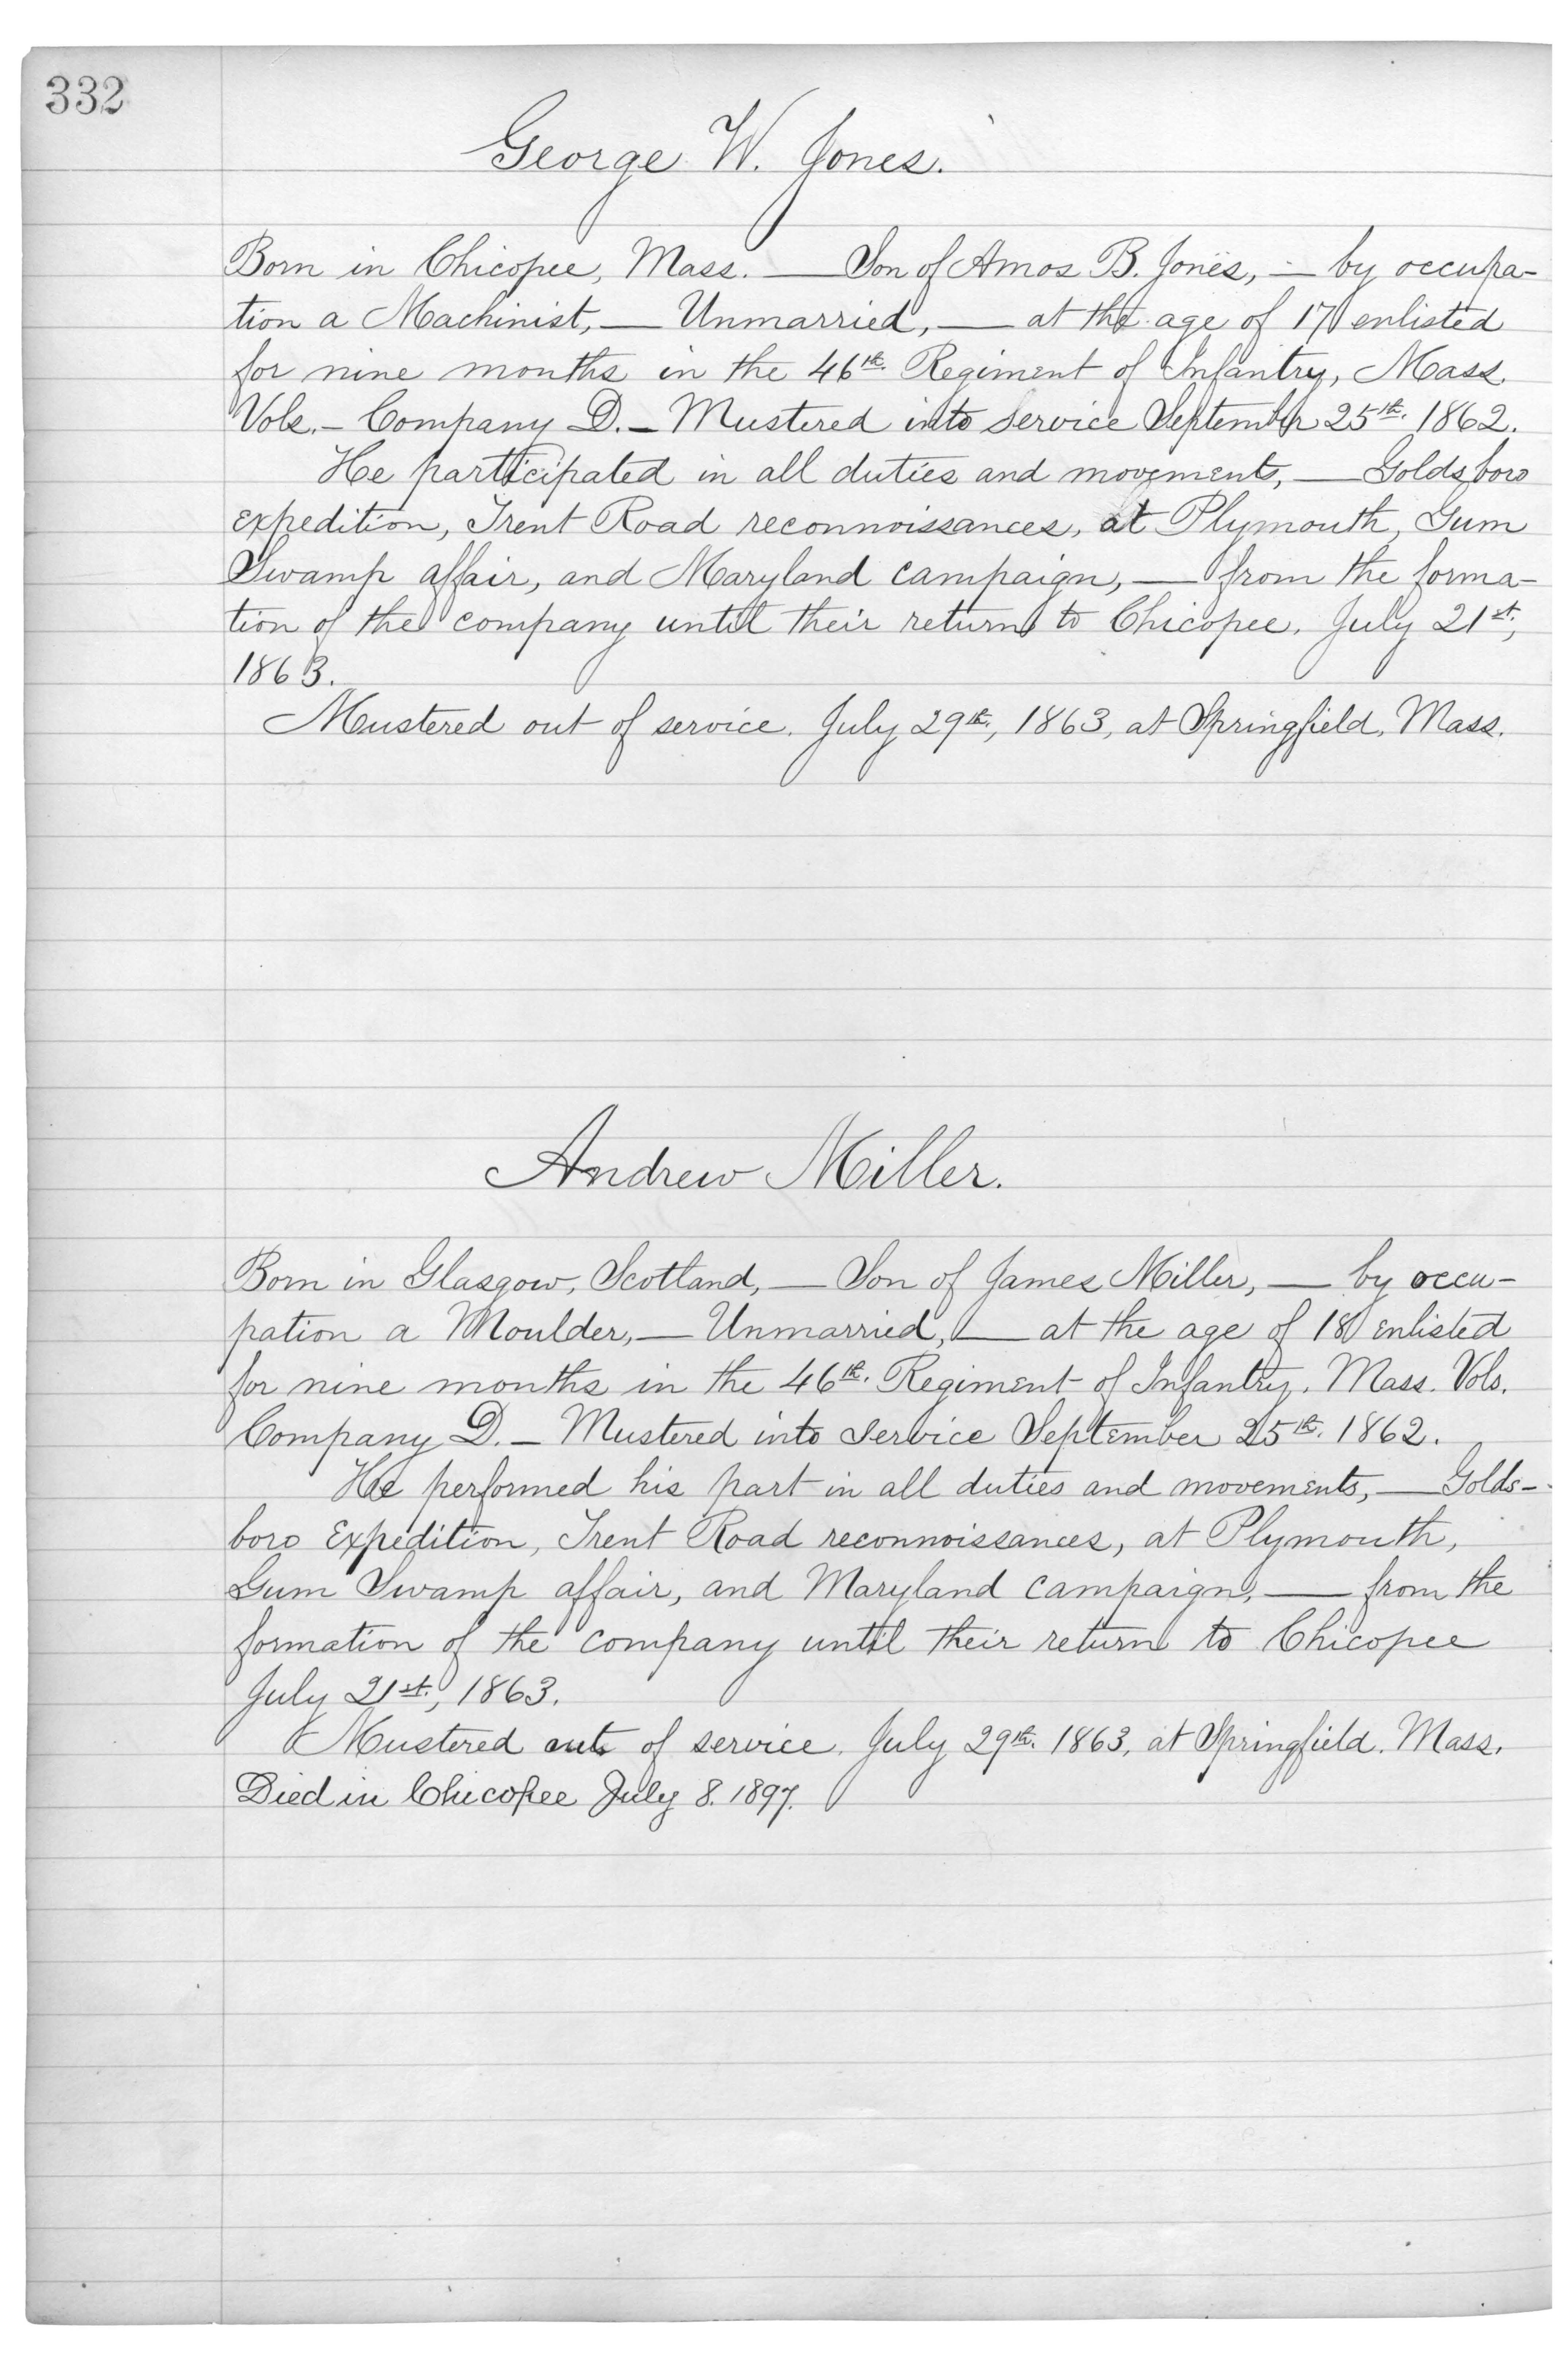 332
George W. Jones.
Born in Chicopee, Mass. — Son of Amos B. Jones, — by occupa-
tion a Machinist, — Unmarried, — at the age of 17 enlisted
for nine months in the 46th. Regiment of Infantry, Mass.
Vols. – Company D. – Mustered into service September 25th. 1862.
He participated in all duties and movements, — Goldsboro
expedition, Trent Road reconnoissances, at Plymouth, Gum
Swamp affair, and Maryland campaign, — from the forma-
tion of the company until their return to Chicopee, July 21st.,
1863.
Mustered out of service. July 29th., 1863, at Springfield, Mass.
Andrew Miller.
Born in Glasgow, Scotland, — Son of James Miller, — by occu-
pation a Moulder, — Unmarried, — at the age of 18 enlisted
for nine months in the 46th. Regiment of Infantry. Mass. Vols.
Company D. – Mustered into service September 25th. 1862.
He performed his part in all duties and movements, — Golds-
boro Expedition, Trent Road reconnoissances, at Plymouth,
Gum Swamp affair, and Maryland campaign, — from the
formation of the company until their return to Chicopee
July 21st., 1863.
Mustered out of service. July 29th. 1863, at Springfield. Mass.
Died in Chicopee July 8. 1897.